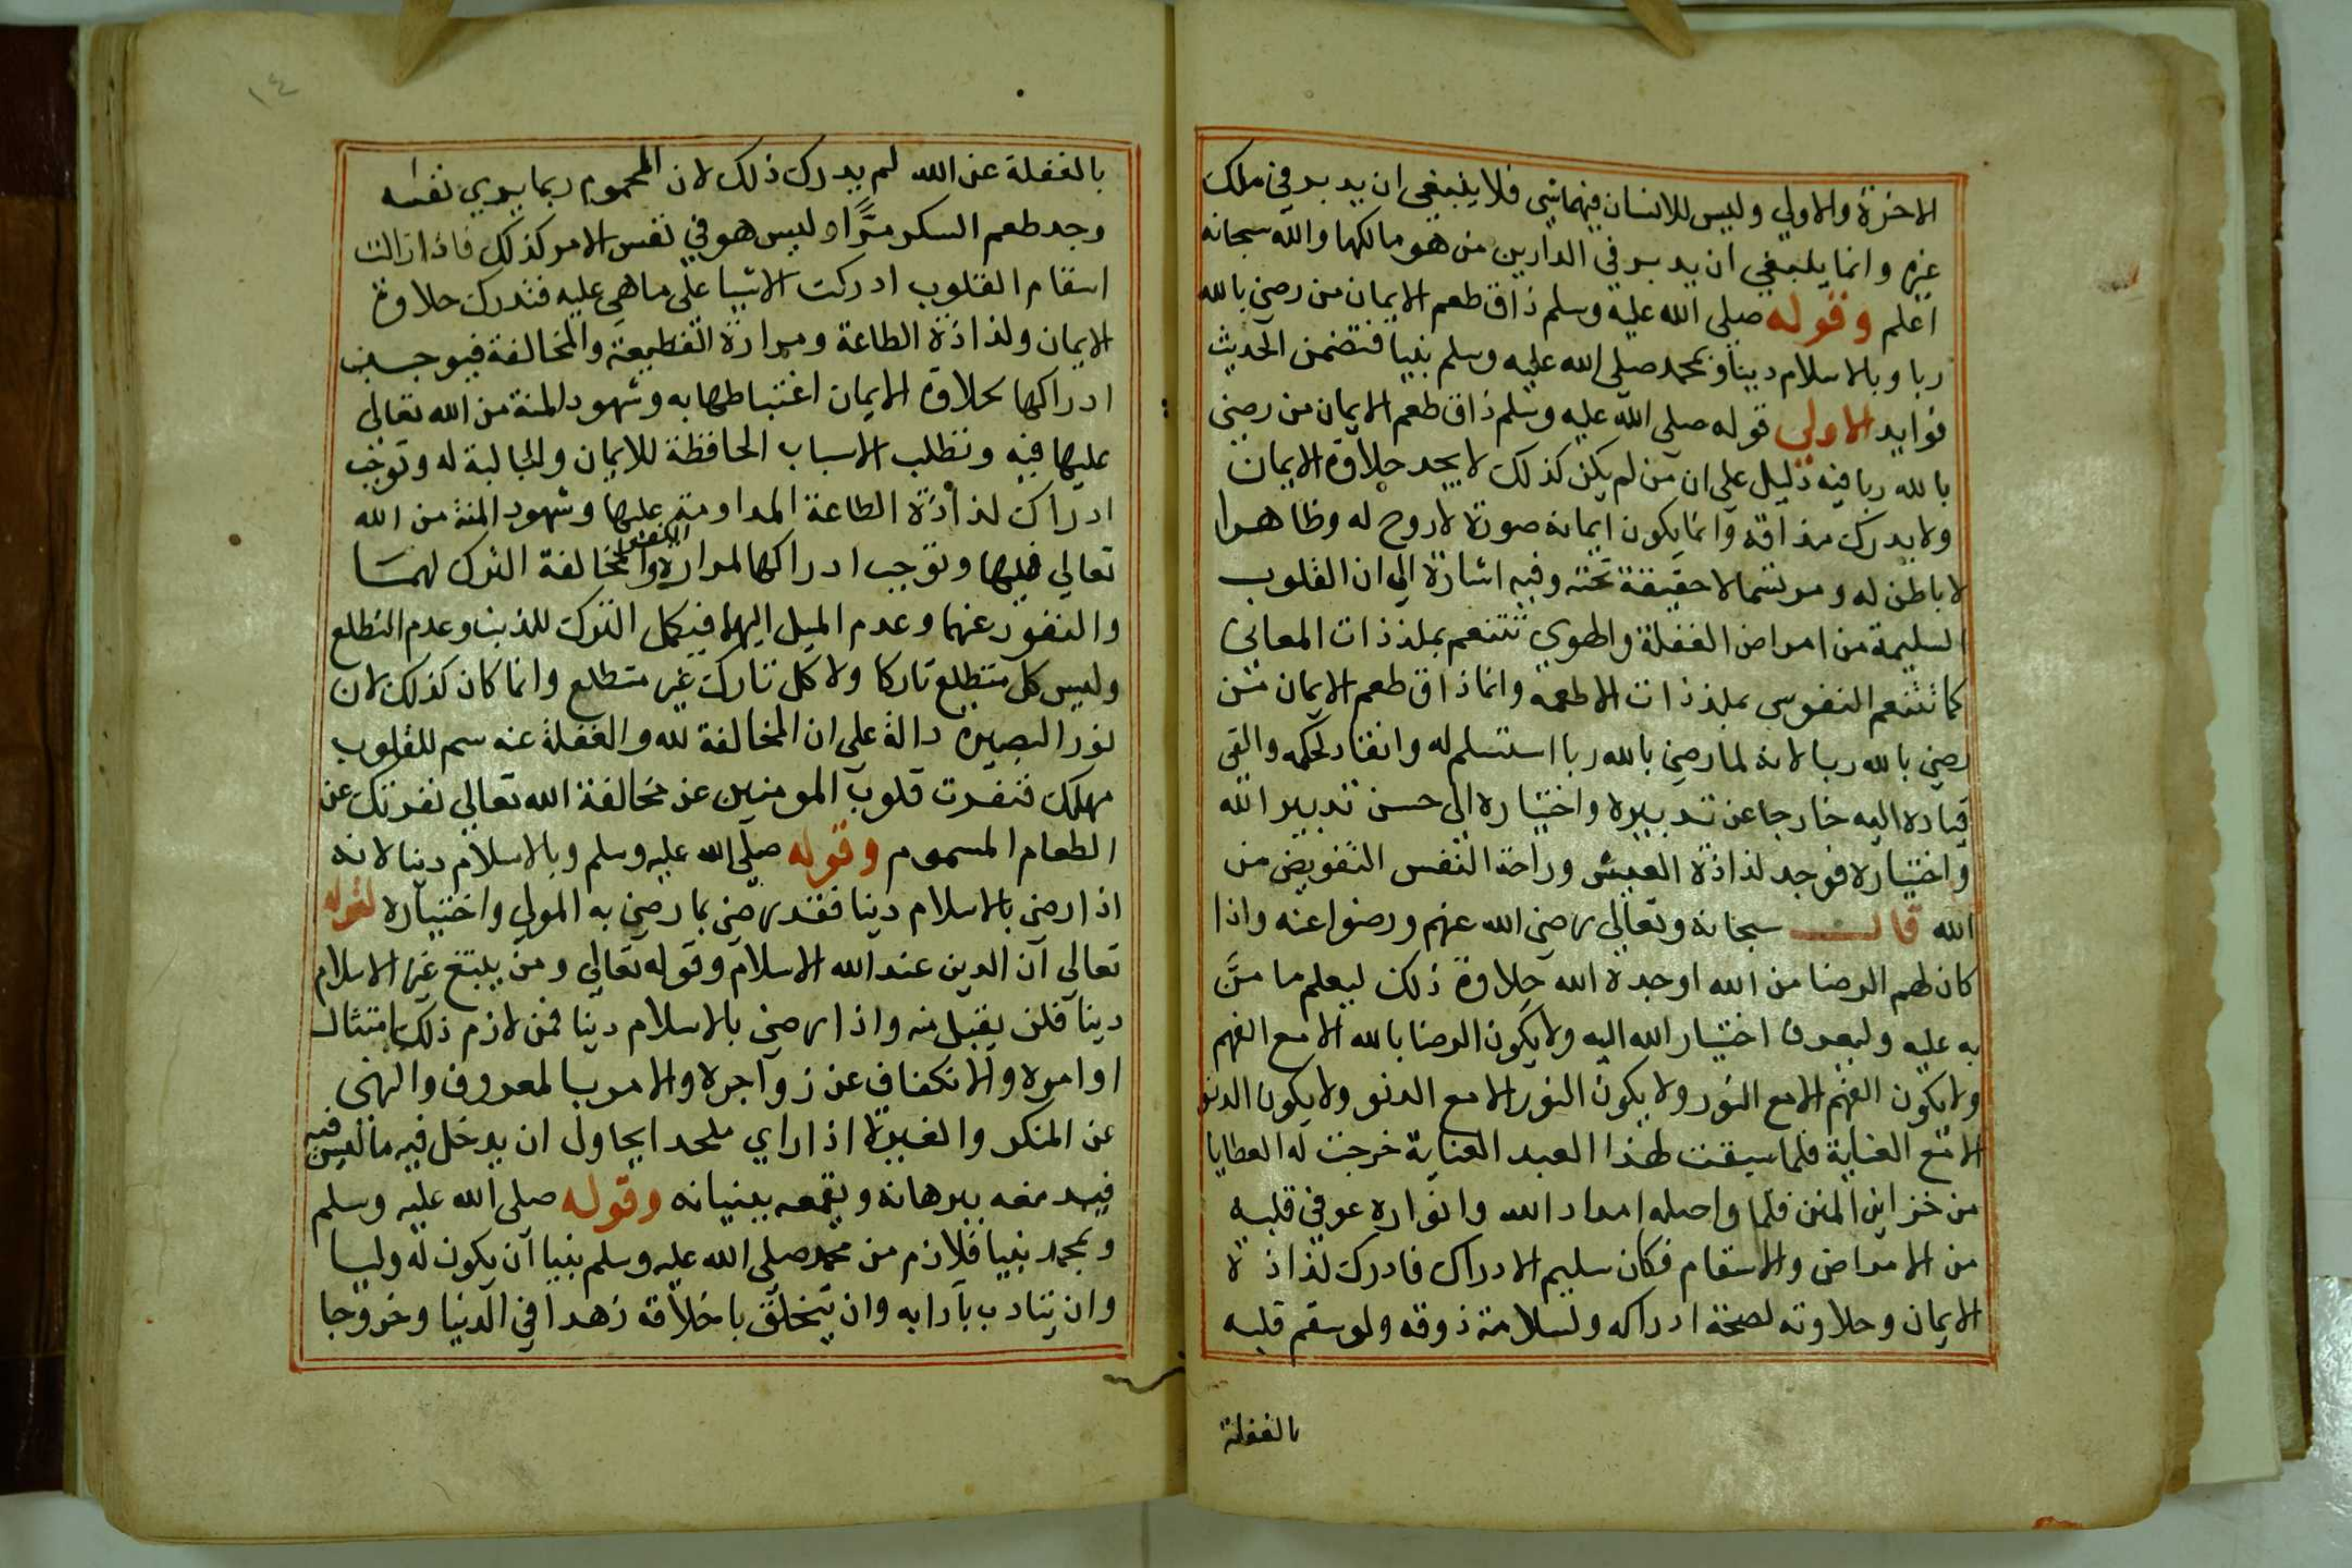 الاخرة والاولي وليس للانسان فيهما شي فلا ينبغي ان يدبر في ملك
غيره وانما ينبغي ان يدبر في الدارين من هو مالكها والله سبحانه
اعلم وقوله صلي الله عليه وسلم ذاق طعم الايمان من رضي بالله
ربا وبالاسلام دينا وبمحمد صلي الله عليه وسلم نبيا فتضمن الحديث
فوايد الاولي قوله صلي الله عليه وسلم ذاق طعم الايمان من رضي
بالله ربا فيه دليل علي ان من لم يكن كذلك لا يجد حلاوة الايمان
ولا يدرك مذاقه وانما يكون ايمانه صورة لا روح له وظاهرا
لا باطن له ومرتسما لا حقيقة تحته وفيه اشارة الي ان القلوب
السليمة من امراض الغفلة والهوي تتنعم بملذذات المعاني
كما تتنعم النفوس بملذذات الاطعمة وانما ذاق طعم الايمان من
رضي بالله ربا لانه لما رضي بالله ربا استسلم له وانقاد لحكمه والقي
قياده اليه خارجا عن تدبيره واختياره الي حسن تدبير الله
واختياره فوجد لذاذة العيش وراحة النفس التفويض من
الله قال سبحانه وتعالي رضي الله عنهم ورضوا عنه واذا
كان لهم الرضا من الله اوجده الله حلاوة ذلك ليعلم ما منَّ
به عليه وليعرف اختيار الله اليه ولا يكون الرضا بالله الا مع الفهم
ولا يكون الفهم الا مع النور ولا يكون النور الا مع الدنو ولا يكون الدنو
الا مع العناية فلما سبقت لهذا العبد العناية خرجت له العطايا
من خزاين المنن فلما واصله امداد الله وانواره عوفي قلبه
من الامراض والاسقام فكان سليم الادراك فادرك لذاذة
الايمان وحلاوته لصحة ادراكه ولسلامة ذوقه ولو سقم قلبه
بالغفلة
١٤
بالغفلة عن الله لم يدرك ذلك لان المحموم ربما يري نفسه
وجد طعم السكر مرًّا وليس هو في نفس الامر كذلك فاذا زالت
اسقام القلوب ادركت الاشيا علي ما هي عليه فتدرك حلاوة
الايمان ولذاذة الطاعة ومرارة القطيعة والمخالفة فيوجب
ادراكها لحلاوة الايمان اغتباطها به وشهود المنة من الله تعالي
عليها فيه وتطلب الاسباب الحافظة للايمان والجالبة له وتوجب
ادراك لذاذة الطاعة المداومة عليها وشهود المنة من الله
تعالي فيها وتوجب ادراكها لمرارة الكفر والمخالفة الترك لهما
والنفور عنهما وعدم الميل اليهما فيكمل الترك للذنب وعدم التطلع
وليس كل متطلع تاركا ولا كل تارك غير متطلع وانما كان كذلك لان
نور البصيرة دالة علي ان المخالفة لله والغفلة عنه سم للقلوب
مهلك فنفرت قلوب المومنين عن مخالفة الله تعالي نفرتك عن
الطعام المسموم وقوله صلي الله عليه وسلم وبالاسلام دينا لانه
اذا رضي بالاسلام دينا فقد رضي بما رضي به المولي واختياره لقوله
تعالي ان الدين عند الله الاسلام وقوله تعالي ومن يبتغ غير الاسلام
دينا فلن يقبل منه واذا رضي بالاسلام دينا فمن لازم ذلك امتثال
اوامره والانكفاف عن زواجره والامر بالمعروف والنهي
عن المنكر والغيرة اذا راي ملحدا يحاول ان يدخل فيه ما ليس فيه
فيدمغه ببرهانه ويقمعه ببنيانه وقوله صلي الله عليه وسلم
وبمحمد نبيا فلازم من محمد صلي الله عليه وسلم نبيا ان يكون له وليا
وان يتادب بآدابه وان يتخلق باخلاقه زهدا في الدنيا وخروجا